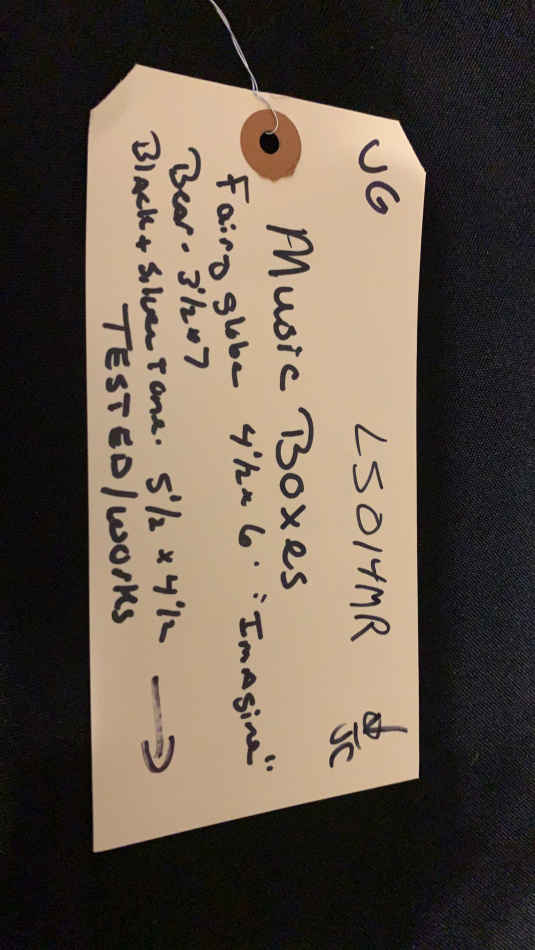 UG L5014MR
JC
Music Boxes
Fairy globe 4 1/2 x 6. "Imagine"
Bear. 3 1/2 x 7
Black + Silver Tone. 5 1/2 x 4 1/2 →
TESTED/works